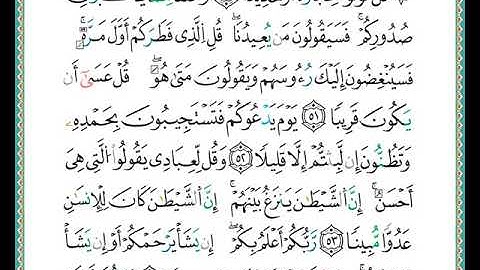 صُدُورِكُمْ ۚ فَسَيَقُولُونَ مَن يُعِيدُنَا ۖ قُلِ ٱلَّذِى فَطَرَكُمْ أَوَّلَ مَرَّةٍ ۚ
فَسَيُنْغِضُونَ إِلَيْكَ رُءُوسَهُمْ وَيَقُولُونَ مَتَىٰ هُوَ ۖ قُلْ عَسَىٰٓ أَن
يَكُونَ قَرِيبًا ٥١ يَوْمَ يَدْعُوكُمْ فَتَسْتَجِيبُونَ بِحَمْدِهِۦ
وَتَظُنُّونَ إِن لَّبِثْتُمْ إِلَّا قَلِيلًا ٥٢ وَقُل لِّعِبَادِى يَقُولُوا۟ ٱلَّتِى هِىَ
أَحْسَنُ ۚ إِنَّ ٱلشَّيْطَـٰنَ يَنزَغُ بَيْنَهُمْ ۚ إِنَّ ٱلشَّيْطَـٰنَ كَانَ لِلْإِنسَـٰنِ
عَدُوًّا مُّبِينًا ٥٣ رَّبُّكُمْ أَعْلَمُ بِكُمْ ۖ إِن يَشَأْ يَرْحَمْكُمْ أَوْ إِن يَشَأْ